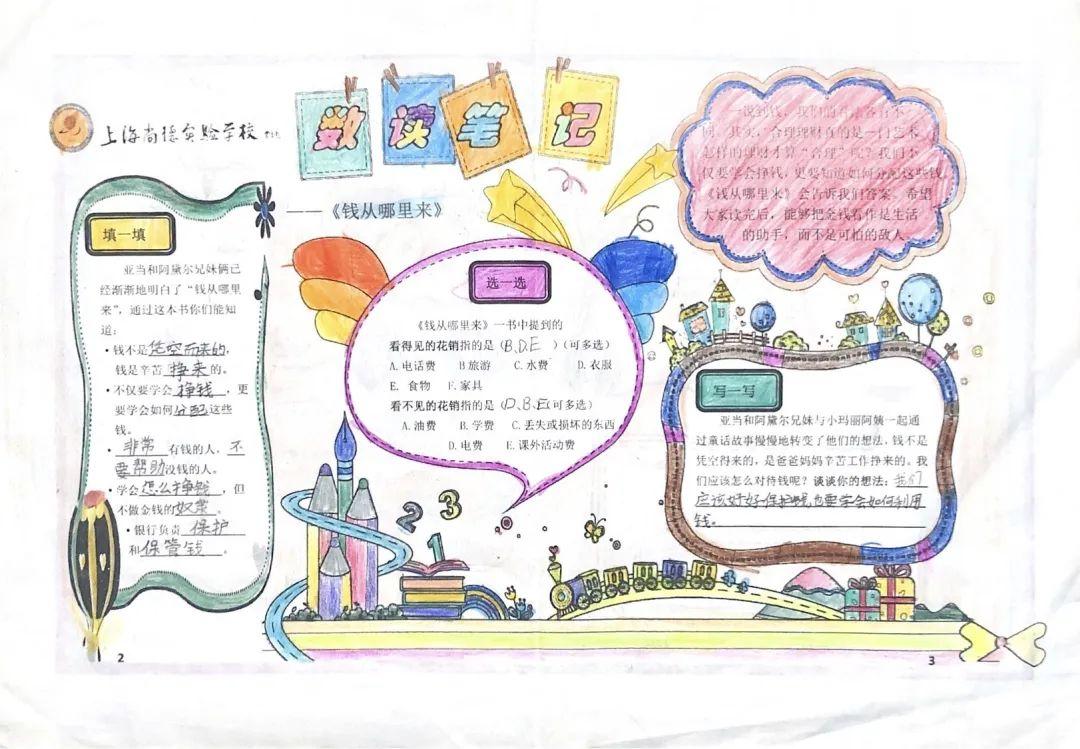 上海尚德实验学校
数读笔记
——《钱从哪里来》
填一填
亚当和阿黛尔兄妹俩已
经渐渐地明白了“钱从哪里
来”，通过这本书你们能知
道：
·钱不是凭空而来的，
钱是辛苦挣来的。
·不仅要学会挣钱，更
要学会如何分配这些
钱。
·非常有钱的人，不
要帮助没钱的人。
·学会怎么挣钱，但
不做金钱的奴隶。
·银行负责保护
和保管钱。
2
选一选
《钱从哪里来》一书中提到的
看得见的花销指的是（B、D、E）（可多选）
A. 电话费 B 旅游 C. 水费 D. 衣服
E. 食物 F. 家具
看不见的花销指的是（D、B、E（可多选）
A. 油费 B. 学费 C. 丢失或损坏的东西
D. 电费 E. 课外活动费
2
3
1
一说到钱，我们的看法各有不
同。其实，合理理财真的是一门艺术，
怎样的理财才算“合理”呢？我们不
仅要学会挣钱，更要知道如何分配这些钱。
《钱从哪里来》会告诉我们答案。希望
大家读完后，能够把金钱看作是生活
的助手，而不是可怕的敌人
写一写
亚当和阿黛尔兄妹与小玛丽阿姨一起通
过童话故事慢慢地转变了他们的想法，钱不是
凭空得来的，是爸爸妈妈辛苦工作挣来的。我
们应该怎么对待钱呢？谈谈你的想法：我们
应该好好保护钱，也要学会如何利用
钱。
3